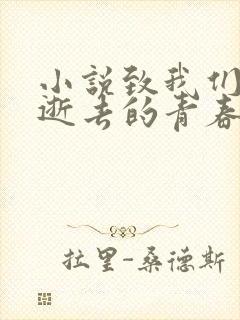 小説致我们
逝去的青春
拉里-桑德斯